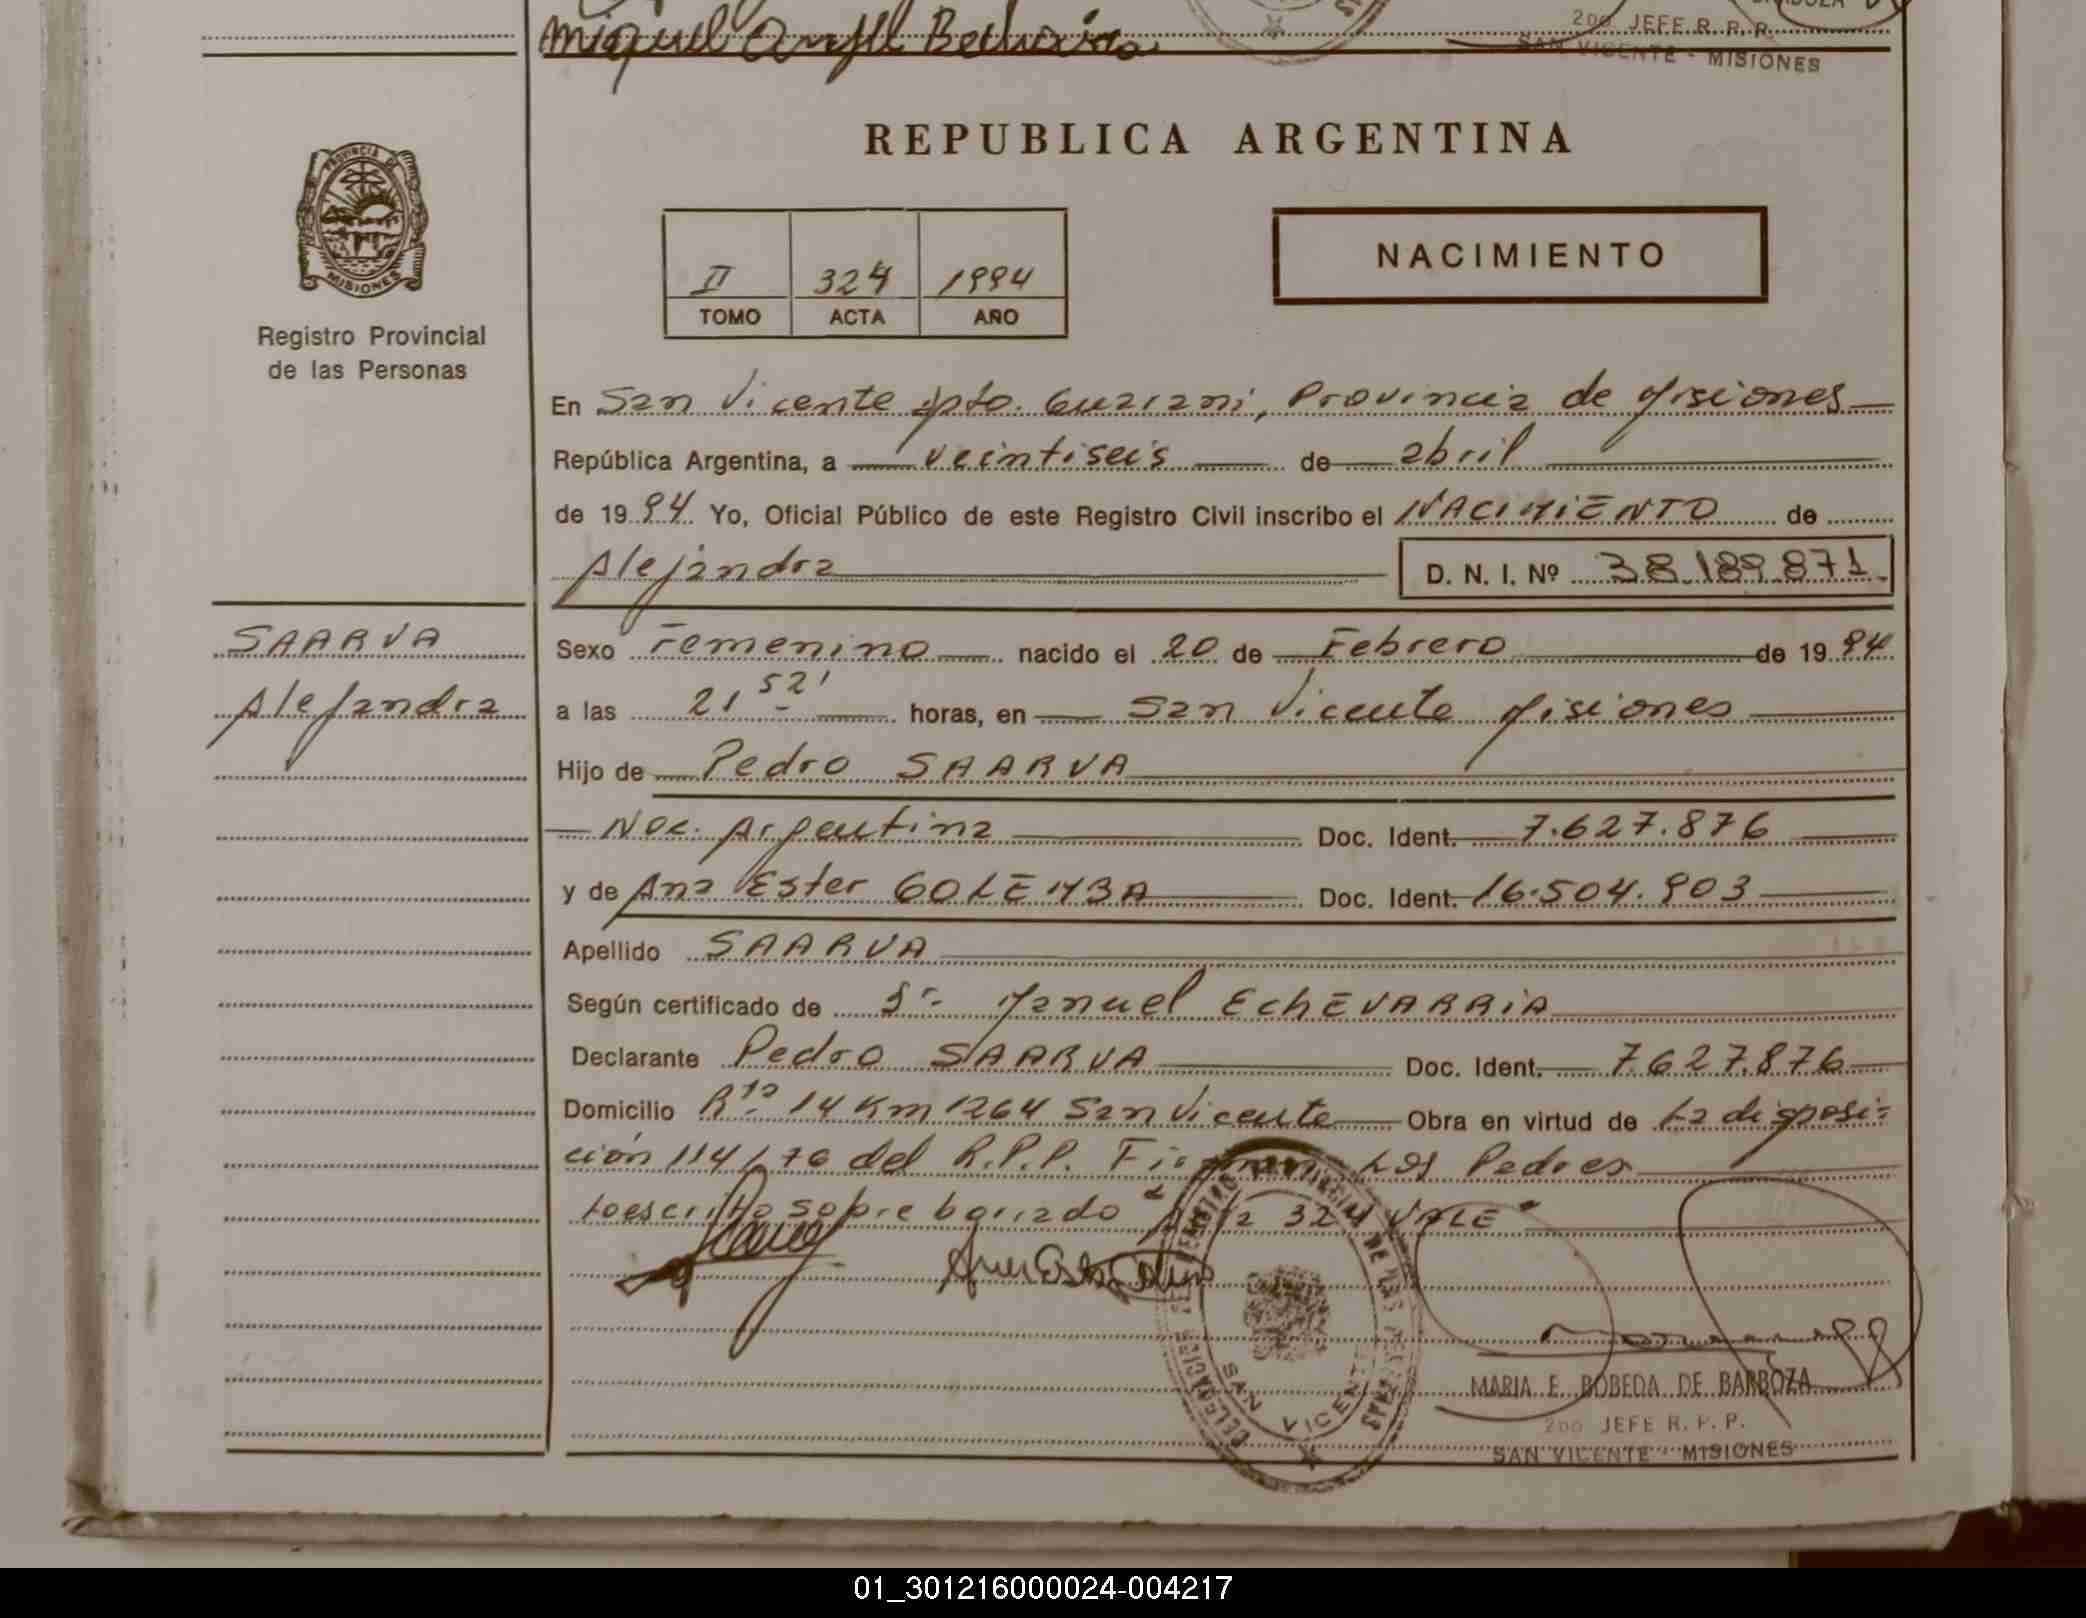 Miguel Angel
2do. JEFE R. P. P.
SAN VICENTE - MISIONES
PROVINCIA DE
MISIONES
Registro Provincial
de las Personas
REPUBLICA ARGENTINA
II 324 1994
TOMO ACTA AÑO
NACIMIENTO
En San Vicente Dpto. Guarani, Provincia de Misiones
República Argentina, a veintiseis de abril
de 1994 Yo, Oficial Público de este Registro Civil inscribo el NACIMIENTO de
Alejandra D. N. I. Nº 38.189.871
SAARVA
Alejandra
Sexo Femenino nacido el 20 de Febrero de 1994
a las 21 52' horas, en San Vicente Misiones
Hijo de Pedro SAARVA
Nac. Argentina Doc. Ident. 7.627.876
y de Ana Ester GOLEMBA Doc. Ident. 16.504.903
Apellido SAARVA
Según certificado de Dr. Manuel EchEVARRiA
Declarante Pedro SAARVA Doc. Ident. 7.627.876
Domicilio Rta 14 Km 1264 San Vicente Obra en virtud de La disposi-
ción 114/76 del R.P.P. Firman Los Padres
Lo escrito sobre borrado " Acta 324 VALE"
DELEGACION DEL REGISTRO PROVINCIAL DE LAS PERSONAS
SAN VICENTE
MARIA E. BOBEDA DE BARBOZA
2do JEFE R. P. P.
SAN VICENTE - MISIONES
01_301216000024-004217